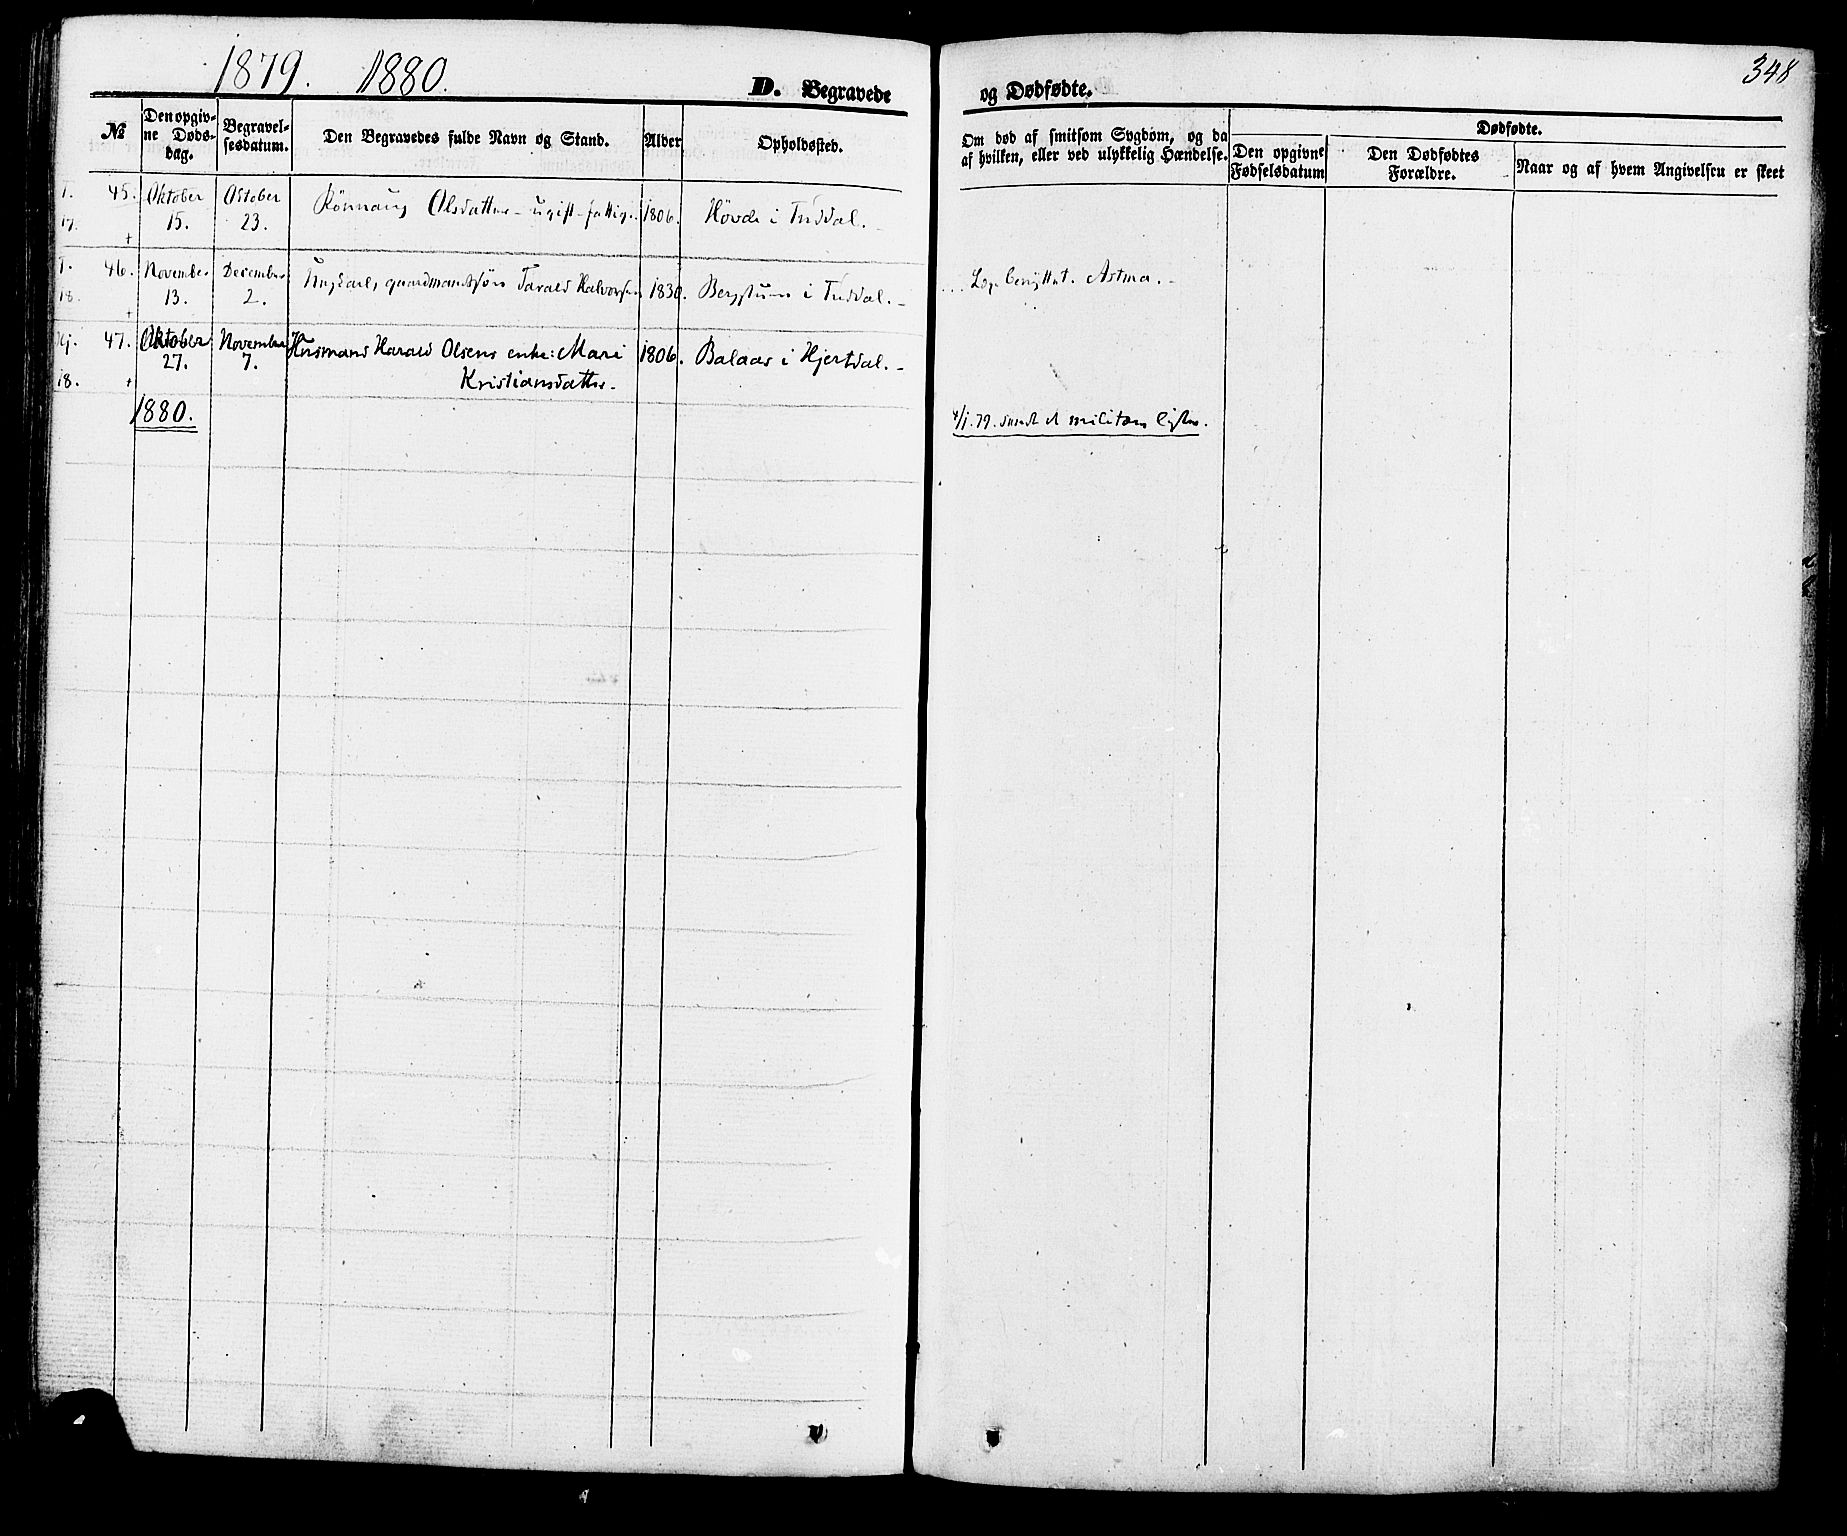 1879. 1880.
348
D. Begravede og Dødfødte.
№
Den opgiv-
ne Døds-
dag.
Begravel-
sesdatum.
Den Begravedes fulde Navn og Stand.
Alder
Opholdssted.
Om død af smitsom Sygdom, og da
af hvilken, eller ved ulykkelig Hændelse.
Dødfødte.
Den opgivne
Fødselsdatum
Den Dødfødtes
Forældre.
Naar og af hvem Angivelsen er skeet
T. 45. Oktober Oktober Rönnaug Olsdatter - ugift - fattig. 1806. Hövde i Tuddal.
17. + 15. 23.
T. 46. November December Ungkarl, gaardmandssön Tarald Halvorsen 1830. Bergstuen i Tuddal. - Læge benyttet. Astma. -
18. + 13. 2.
Hj. 47. Oktober November Husmand Harald Olsens enke: Mari 1806. Balaas i Hjertdal. -
18. + 27. 7. Kristiansdatter -
1880.
4/1. 79. sendt et militær